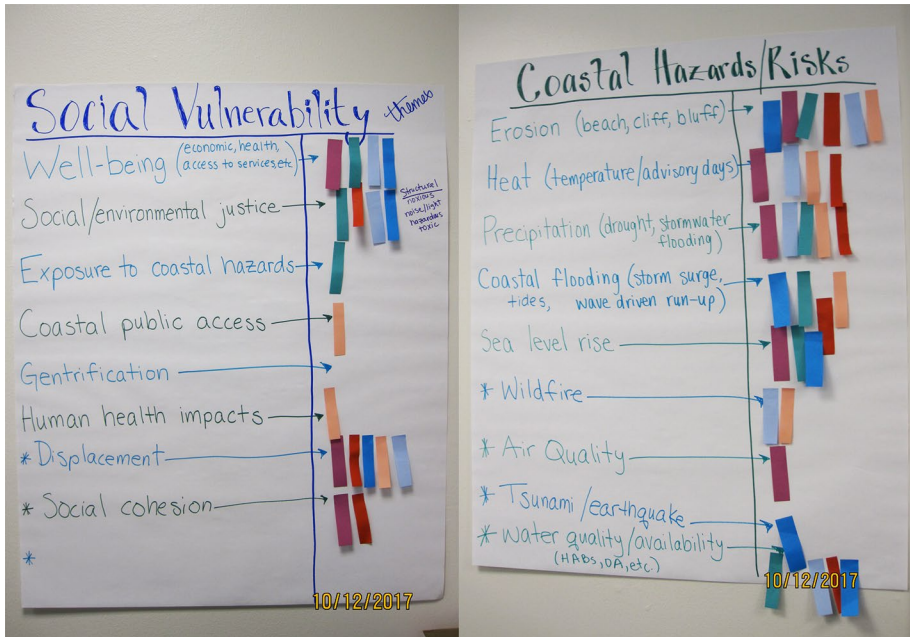 Social Vulnerability themes
Well-being (economic, health,
access to services, etc)
Social/environmental justice
structural
noxious
noise/light
hazardous
toxic
Exposure to coastal hazards
Coastal public access
Gentrification
Human health impacts
* Displacement
* Social cohesion
*
10/12/2017
Coastal Hazards/Risks
Erosion (beach, cliff, bluff)
Heat (temperature/advisory days)
Precipitation (drought, stormwater
flooding)
Coastal flooding (storm surge,
tides, wave driven run-up)
Sea level rise
* Wildfire
* Air Quality
* Tsunami/earthquake
* Water quality/availability
(HABs, OA, etc.)
10/12/2017